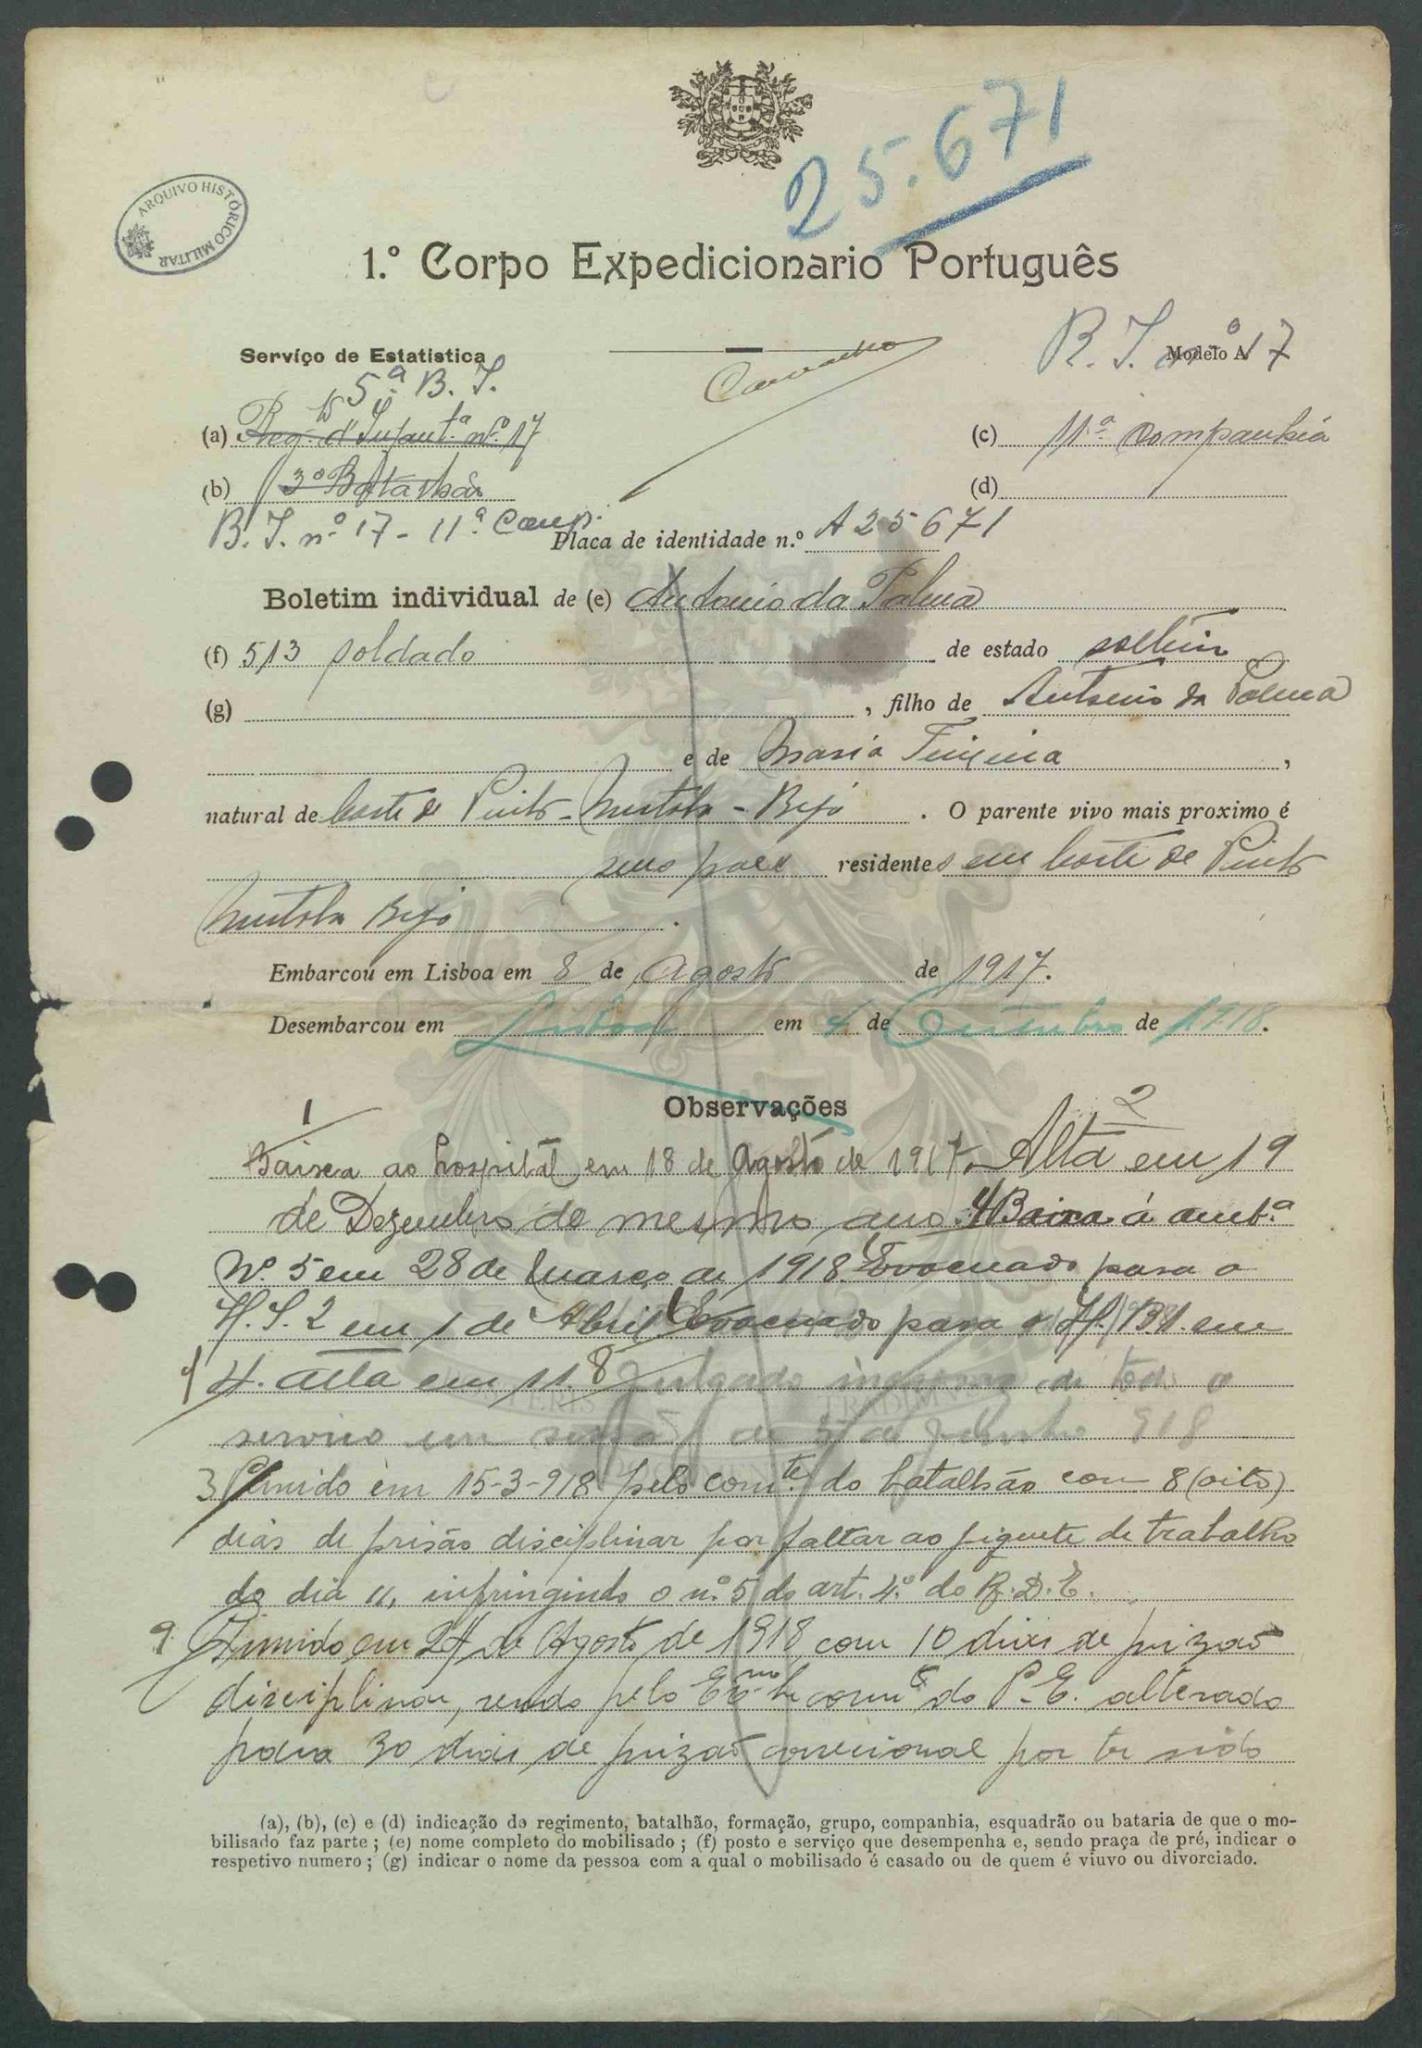 25.671
ARQUIVO HISTÓRICO MILITAR
1.º Corpo Expedicionario Português
Serviço de Estatistica
Carvalho
R. I. nº 17
Modelo A
5ª B. I.
(a) Reg. d'Infant.ª nº 17
(c) 11.ª companhia
(b) 3º Batalhão
(d)
B. I. nº 17 - 11ª Comp.
Placa de identidade n.º A 25671
Boletim individual de (e) Antonio da Palma
(f) 513 soldado de estado solteiro
(g) , filho de Antonio da Palma
e de Maria Teixeira,
natural de Corte de Pinto - Mertola - Beja. O parente vivo mais proximo é
seus paes residentes em Corte de Pinto
Mertola Beja.
Embarcou em Lisboa em 8 de Agosto de 1917.
Desembarcou em Lisboa em 4 de Outubro de 1918.
Observações
1 Baixa ao hospital em 18 de Agosto de 1917. 2 Alta em 19
de Dezembro do mesmo ano. 4 Baixa á amb.ª
Nº. 5 em 28 de Março de 1918. Evacuado para o
H. S. 2 em 1 de Abril Evacuado para o H. B. 1. em
4. alta em 11. 8 Julgado incapaz de todo o
serviço em sessão de 5 de Junho 918
3 Punido em 15-3-918 pelo com.te do batalhão com 8 (oito)
dias de prisão disciplinar por faltar ao piquete de trabalho
do dia 11, infringindo o nº 5 do art. 4.º do R. D. E.
9 Punido em 24 de Agosto de 1918 com 10 dias de prizão
disciplinar, sendo pelo Exmo com.te do P. E. alterado
para 30 dias de prizão correcional por ter sido
(a), (b), (c) e (d) indicação do regimento, batalhão, formação, grupo, companhia, esquadrão ou bataria de que o mo-
bilisado faz parte; (e) nome completo do mobilisado; (f) posto e serviço que desempenha e, sendo praça de pré, indicar o
respetivo numero; (g) indicar o nome da pessoa com a qual o mobilisado é casado ou de quem é viuvo ou divorciado.